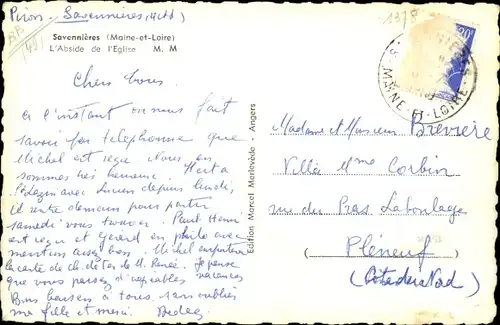 Piron - Savennières (M et L)
Savennières (Maine-et-Loire)
L'Abside de l'Eglise M. M
Chers Tous
A l'instant on nous fait
savoir par telephonne que
Michel est reçu Nous en
sommes très heureux.
avec Lucien depuis lundi,
demain pour partir
samedi vous trouver. Paul Henri
est reçu et Gérard en philo avec
mention assez bien. Michel
la carte de ch. de fer de M. Renée. Je pense
que vous passez d'agréables vacances
Bons baisers à tous sans oublier
ma fille et merci.
Edition Marcel Merlevède - Angers
1378
20F
MAINE-ET-LOIRE
Madame et Monsieur Brevière
Villa Mme Corbin
rue des Pras Lahoulage
Pléneuf
(Côtes du Nord)